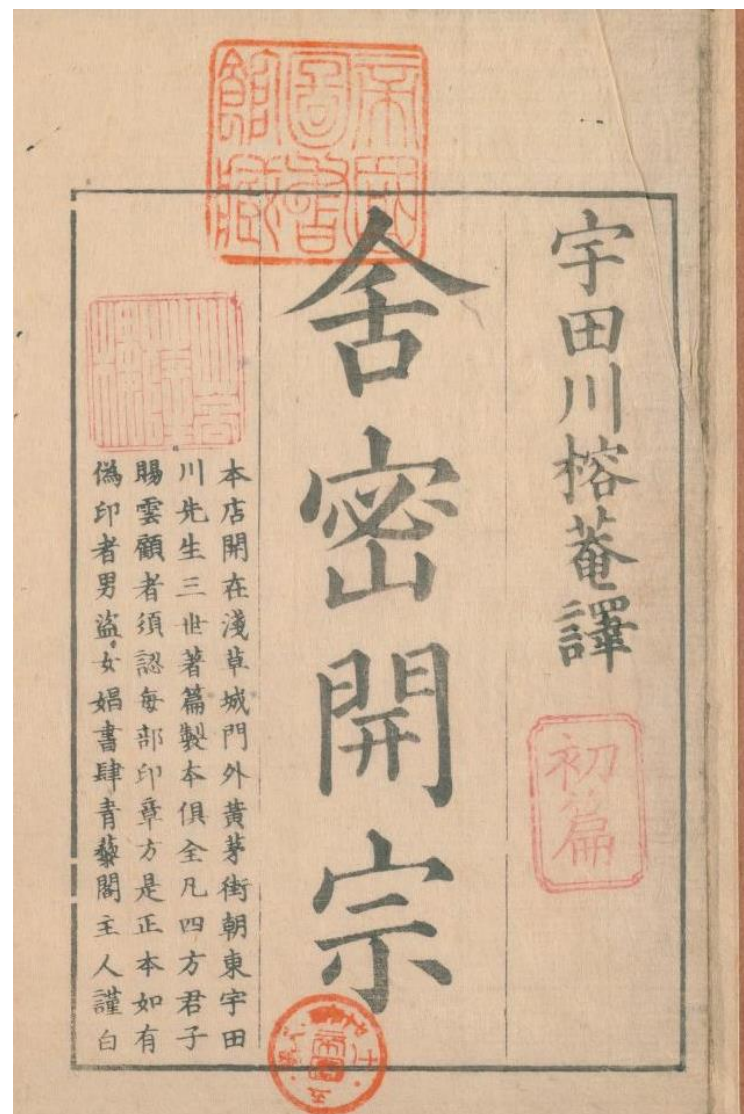 宇田川榕菴譯
初篇
舍密開宗
本店開在淺草城門外黄茅街朝東宇田
川先生三世著篇製本俱全凡四方君子
賜雲顧者須認每部印章方是正本如有
偽印者男盗女娼書肆青藜閣主人謹白
帝國圖書館藏